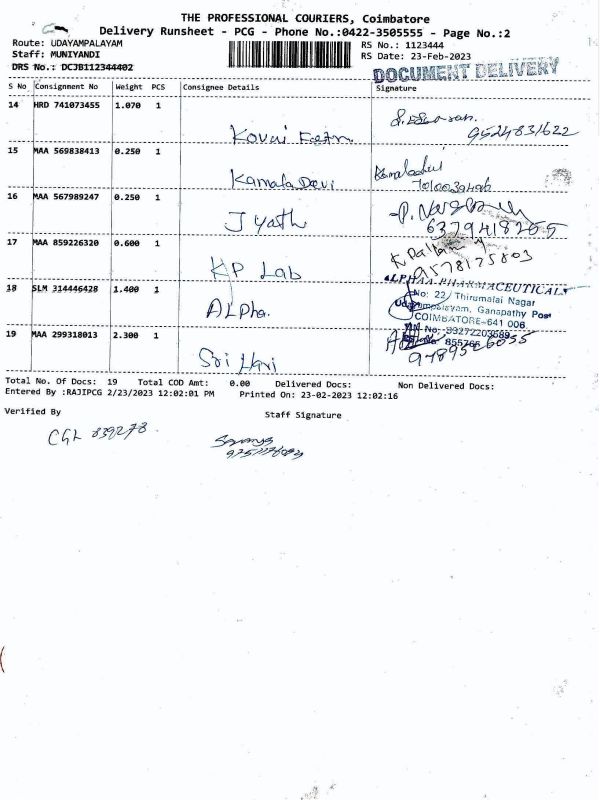 THE PROFESSIONAL COURIERS, Coimbatore
Delivery Runsheet - PCG - Phone No.:0422-3505555 - Page No.:2
Route: UDAYAMPALAYAM
RS No.: 1123444
Staff: MUNIYANDI
RS Date: 23-Feb-2023
DRS No.: DCJB112344402
DOCUMENT DELIVERY
S No Consignment No Weight PCS Consignee Details Signature
14 HRD 741073455 1.070 1
Kovai
9524831622
15 MAA 569838413 0.250 1
Kamala Devi
16 MAA 567989247 0.250 1
Jyathi
6379418255
17 MAA 859226320 0.600 1
KP Lab
9578175803
18 SLM 314446428 1.400 1
ALPha.
ALPHAA PHARMACEUTICALS
No: 22, Thirumalai Nagar
Udayampalayam, Ganapathy Post
COIMBATORE-641 006
19 MAA 299318013 2.300 1
Sri Hari
9789526055
Total No. Of Docs: 19 Total COD Amt: 0.00 Delivered Docs: Non Delivered Docs:
Entered By :RAJIPCG 2/23/2023 12:02:01 PM Printed On: 23-02-2023 12:02:16
Verified By
Staff Signature
CGL 839278